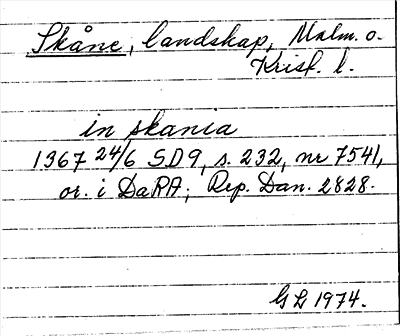 Skåne, landskap, Malm. o.
Krist. l.
in skania
1367 24/6 SD9, s. 232, nr 7541,
or. i DaRA; Rep. Dan. 2828.
GL 1974.